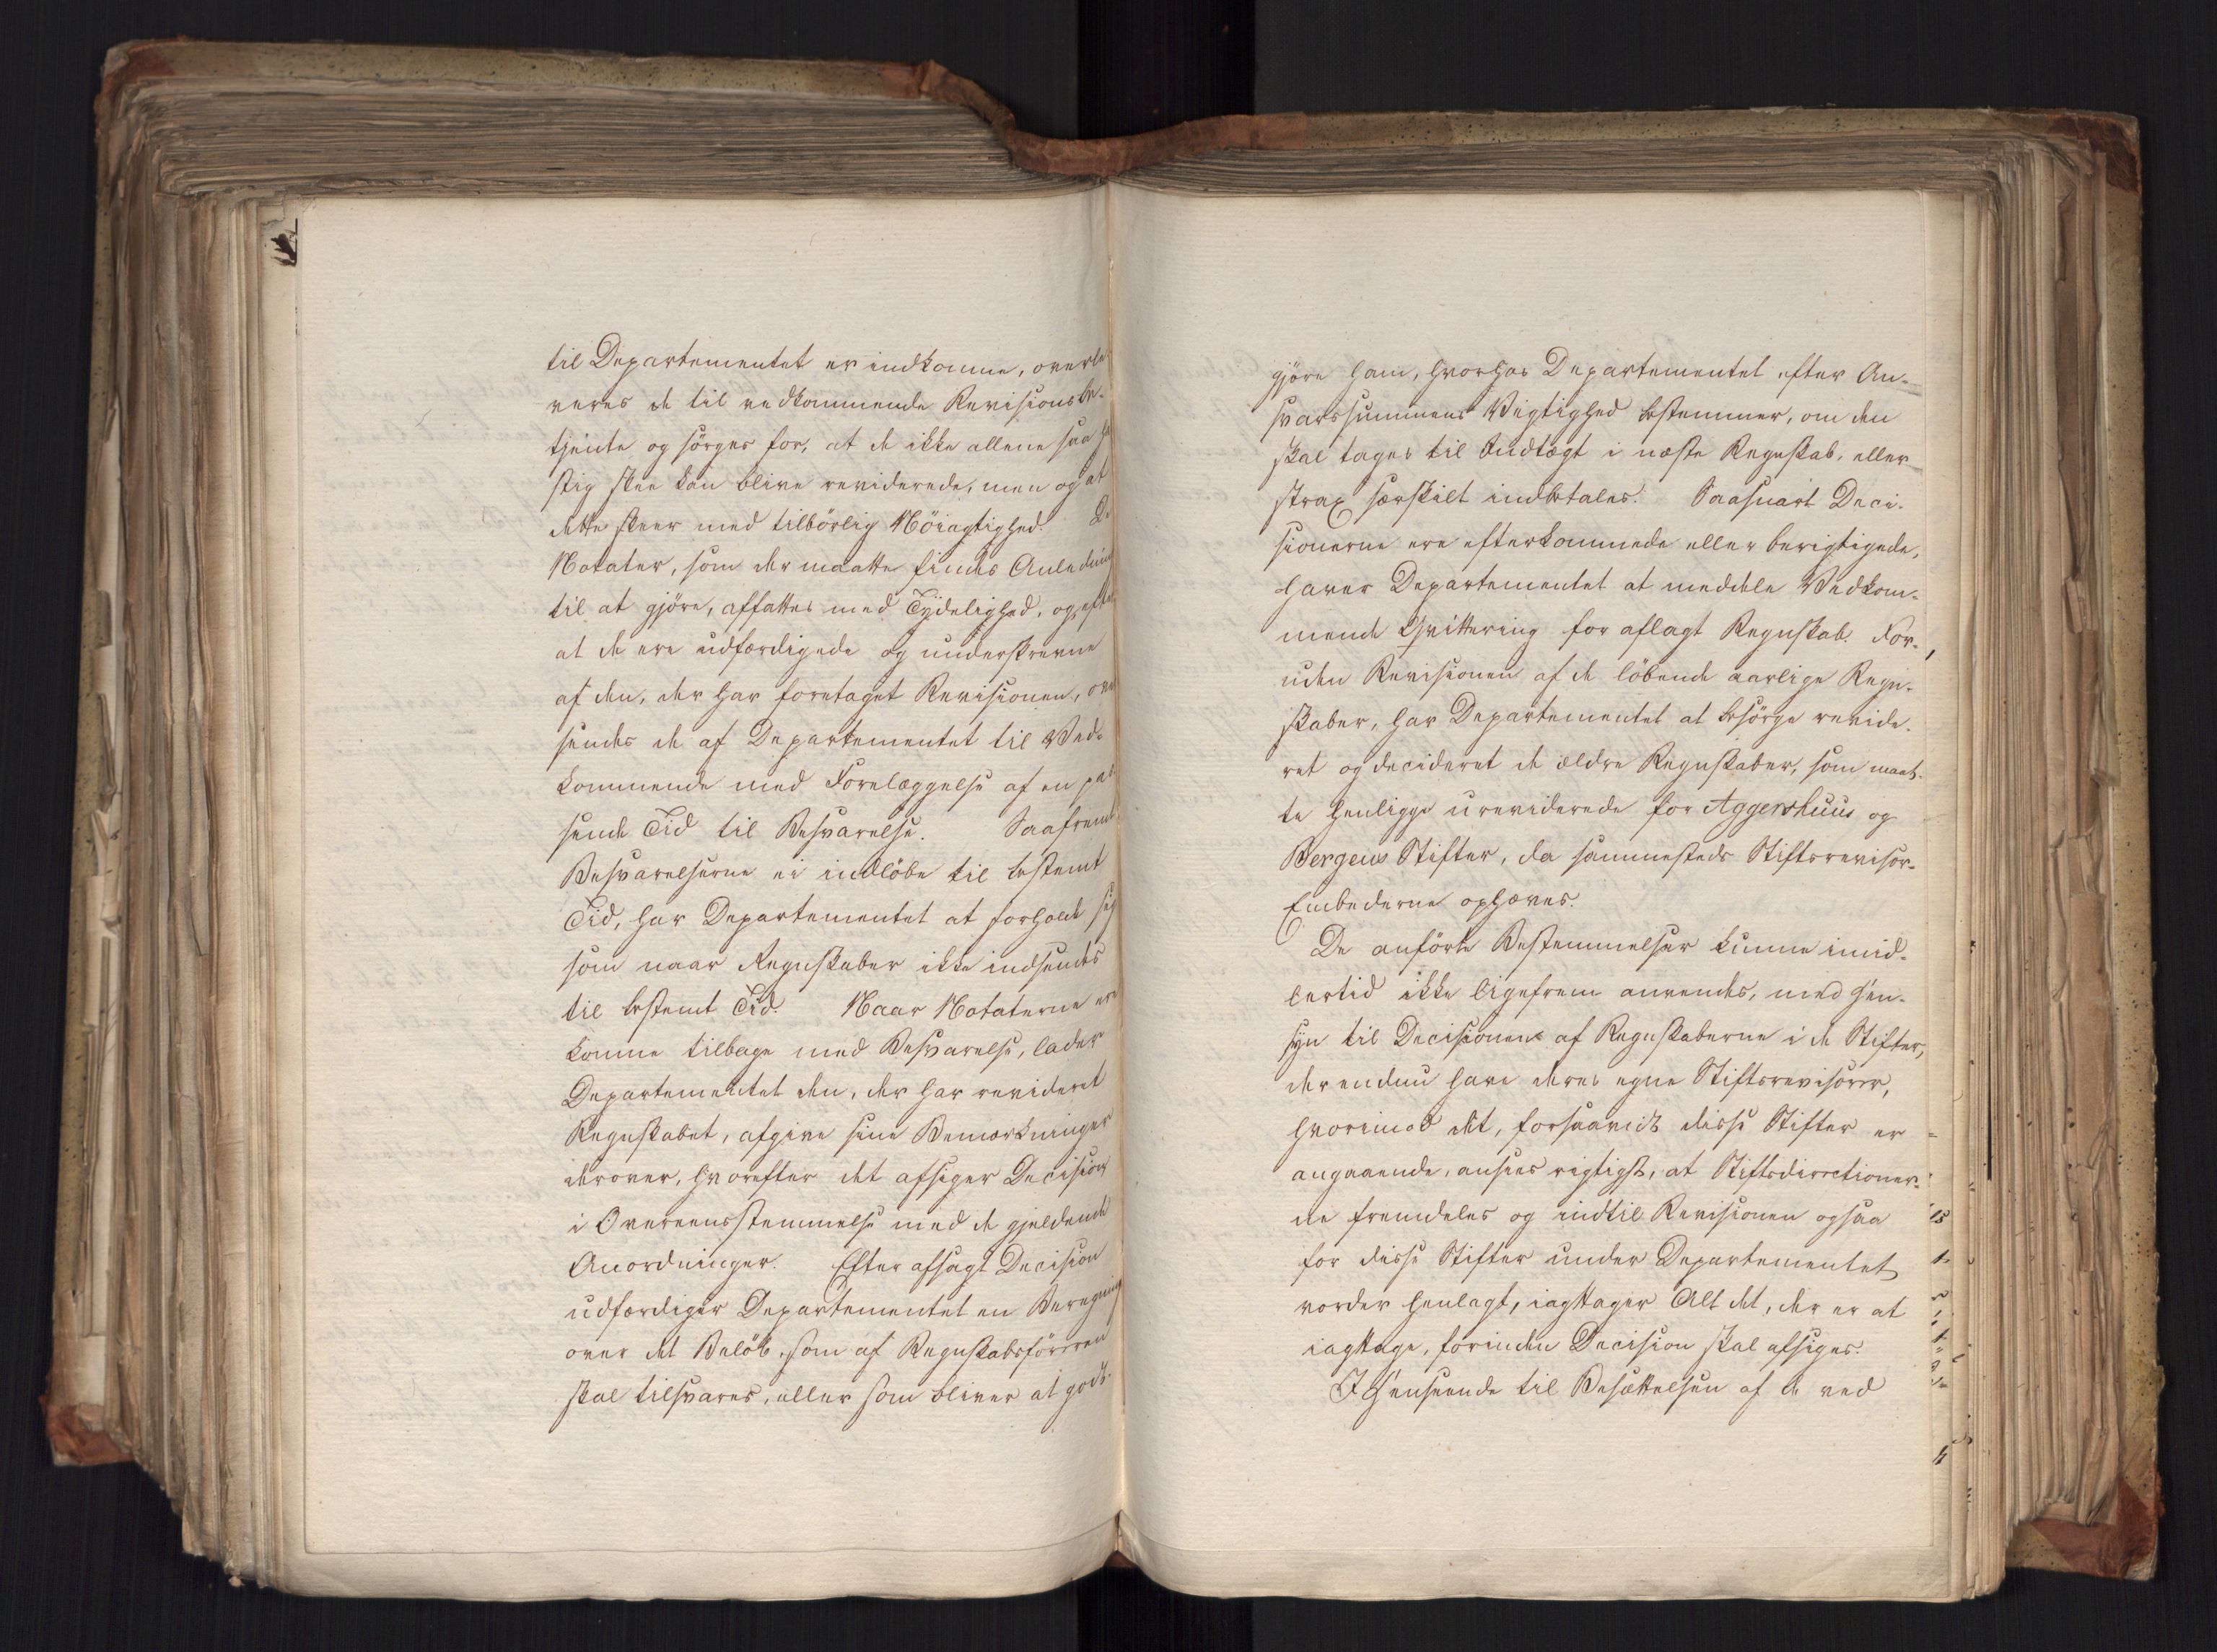 til Departementet er indkomne, overle
veres de til vedkommende Revisionsbe-
tjente og sörges for, at de ikke allene saa ha
stig skee kan blive reviderede, men og at
dette skeer med tilbörlig Nöiagtighed. De
Notater, som der maatte findes Anledning
til at gjöre, affattes med Tydelighed, og efter
at de ere udfærdigede og underskrevne
af den, der har foretaget Revisionen, over
sendes de af Departementet til Ved-
kommende med Forelæggelse af en pas
sende Tid til Besvarelse. Saafremt
Besvarelserne ei indlöbe til bestemt
Tid, har Departementet at forholde sig
som naar Regnskaber ikke indsendes
til bestemt Tid. Naar Notaterne ere
komne tilbage med Besvarelse, lader
Departementet den, der har revideret
Regnskabet, afgive sine Bemærkninger
derover, hvorefter det afsiger Decision
i Overeensstemmelse med de gjeldende
Anordninger. Efter afsagt Decision
udfærdiger Departementet en Beregning
over det Belöb, som af Regnskabsföreren
skal tilsvares, eller som bliver at godt-
gjöre ham, hvorhos Departementet efter An-
svarssummens Vigtighed bestemmer, om den
skal tages til Indtægt i næste Regnskab, eller
strax særskilt indbetales. Saasnart Deci-
sionerne ere efterkommede eller berigtigede,
haver Departementet at meddele Vedkom-
mende Qvittering for aflagt Regnskab. For-
uden Revisionen af de löbende aarlige Regn-
skaber, har Departementet at besörge revide-
ret og decideret de ældre Regnskaber, som maat-
te henligge ureviderede for Aggershuus og
Bergens Stifter, da sammesteds Stiftsrevisor-
Embederne ophæves.
De anförte Bestemmelser kunne imid-
lertid ikke ligefrem anvendes, med Hen-
syn til Decisionen af Regnskaberne i de Stifter,
der endnu have deres egne Stiftsrevisorer,
hvorimod det, forsaavidt disse Stifter er
angaaende, ansees rigtigst, at Stiftsdirectioner-
ne fremdeles og indtil Revisionen ogsaa
for disse Stifter under Departementet
vorder henlagt, iagttager Alt det, der er at
iagttage, forinden Decision skal afsiges.
I Henseende til Besættelsen af de ved